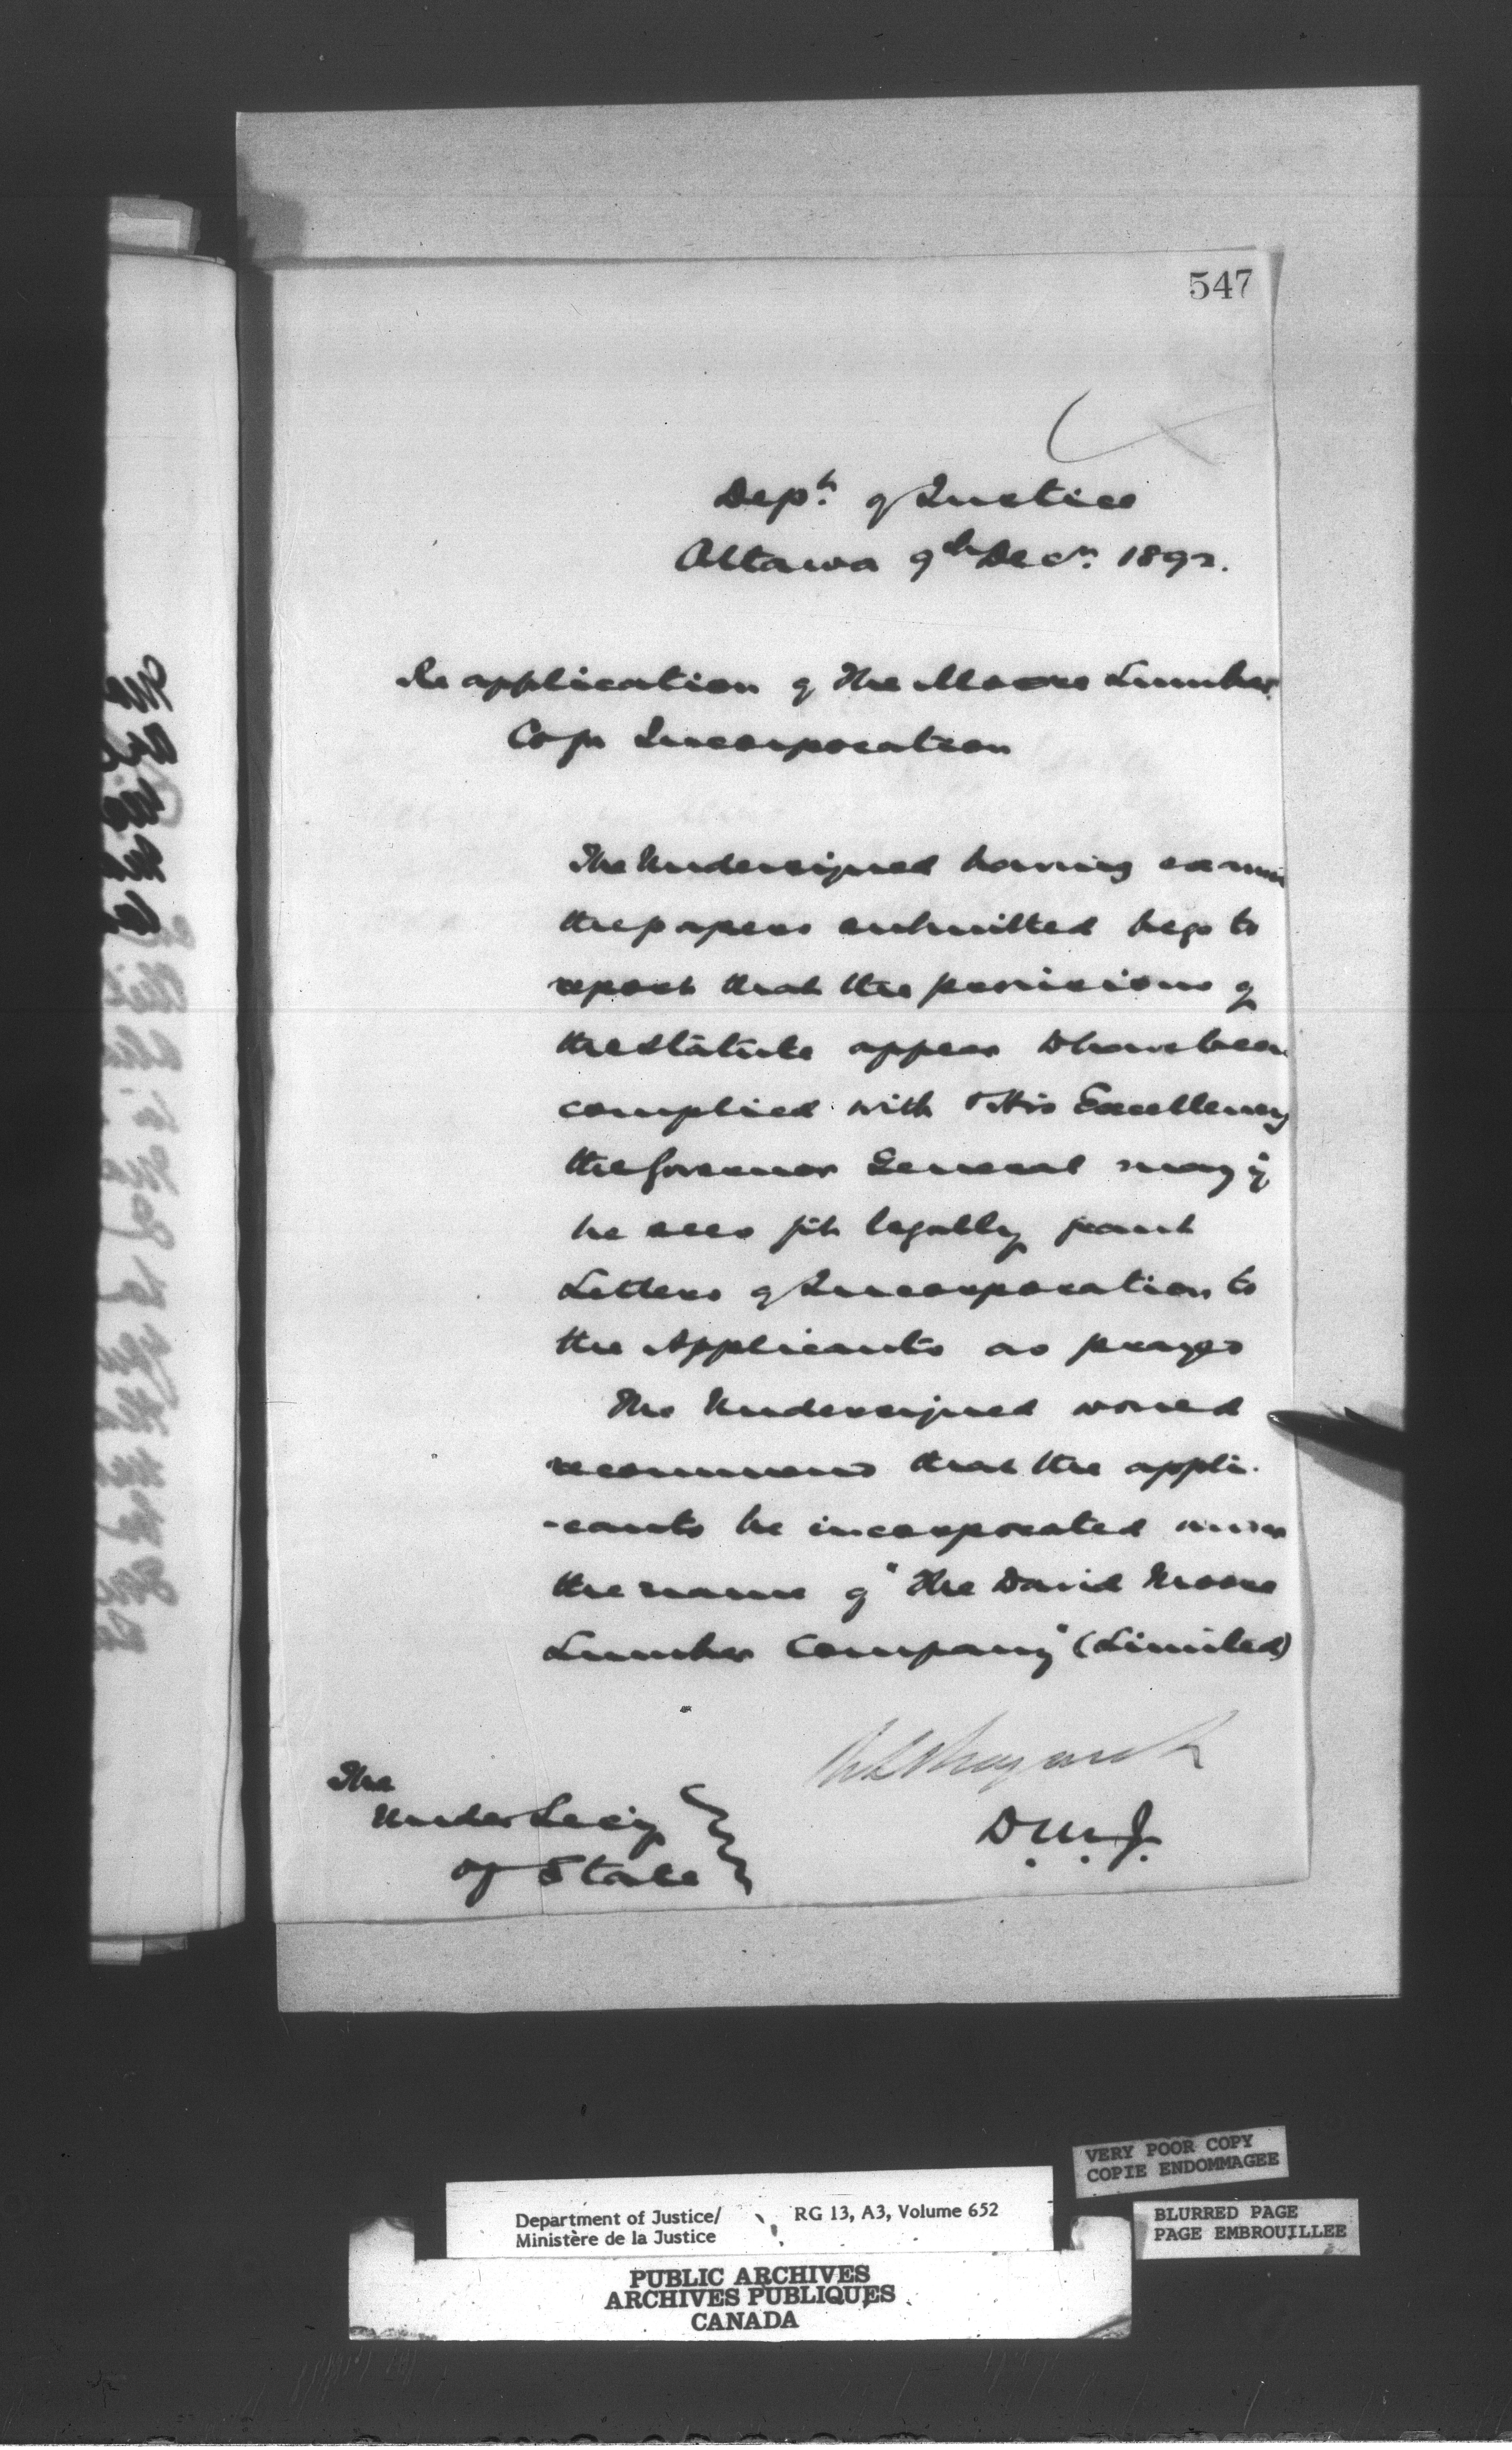 547
Dept. of Justice
Ottawa 9th Decr. 1892.
Re application of The Moore Lumber
Coy Incorporation
The Undersigned having examin
the papers submitted begs to
report that the provisions of
the Statute appear to have been
complied with & His Excellency
the Governor General may if
he sees fit legally grant
Letters of Incorporation to
the Applicants as prayed
The Undersigned would
recommend that the appli-
-cants be incorporated under
the name of "The David Moore
Lumber Company" (Limited)
D.M.J.
The
Under Secy
of State
VERY POOR COPY
COPIE ENDOMMAGEE
BLURRED PAGE
PAGE EMBROUILLEE
Department of Justice/ RG 13, A3, Volume 652
Ministère de la Justice
PUBLIC ARCHIVES
ARCHIVES PUBLIQUES
CANADA